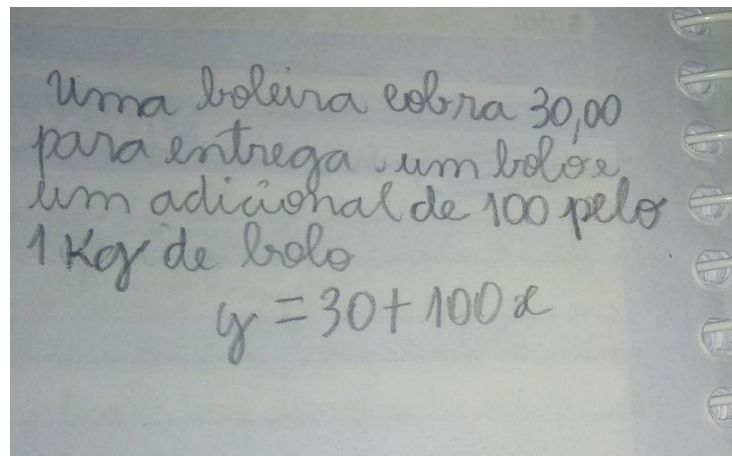 Uma boleira cobra 30,00
para entrega um bolo e
um adicional de 100 pelo
1 Kg de bolo
y = 30 + 100x